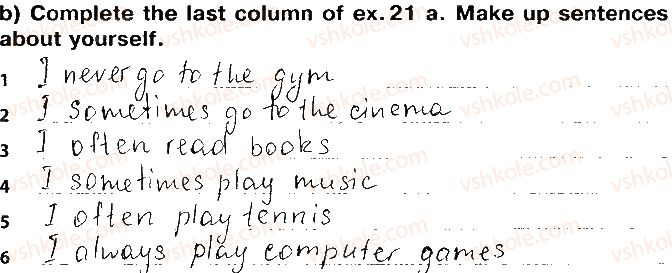 b) Complete the last column of ex. 21 a. Make up sentences
about yourself.
1 I never go to the gym
2 I sometimes go to the cinema
3 I often read books
4 I sometimes play music
5 I often play tennis
6 I always play computer games